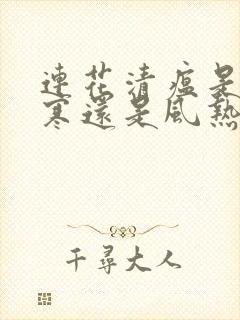 連花清瘟是
寒還是風熱
千尋大人